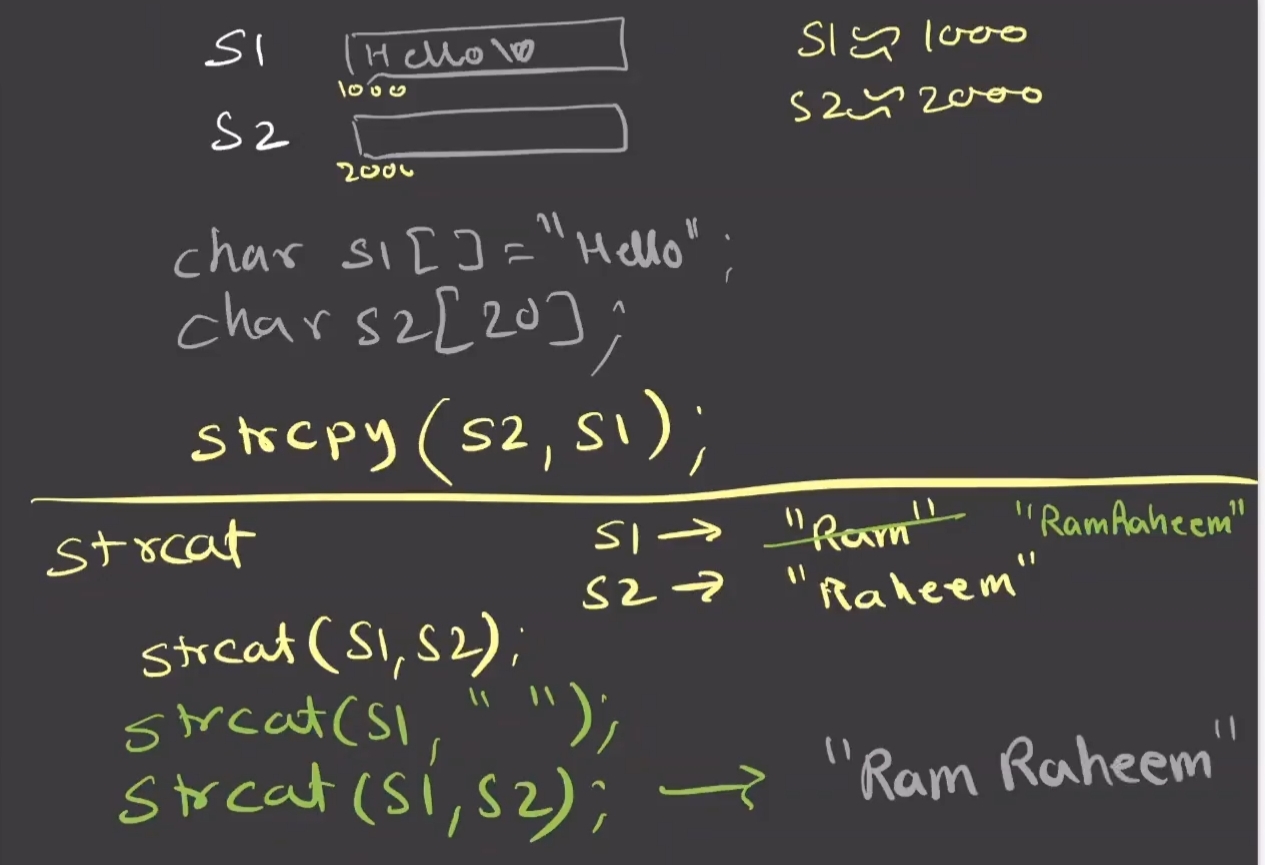 S1 Hello\0 S1 ≈ 1000
1000
S2 S2 ≈ 2000
2000
char s1[] = "Hello";
char s2[20];
strcpy(s2, s1);
strcat S1 → "Ram" "RamRaheem"
S2 → "Raheem"
strcat(S1, S2);
strcat(S1, " ");
strcat(S1, S2); → "Ram Raheem"